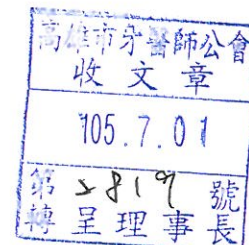 高雄市牙醫師公會
收文章
105.7.01
第2819號
轉呈理事長